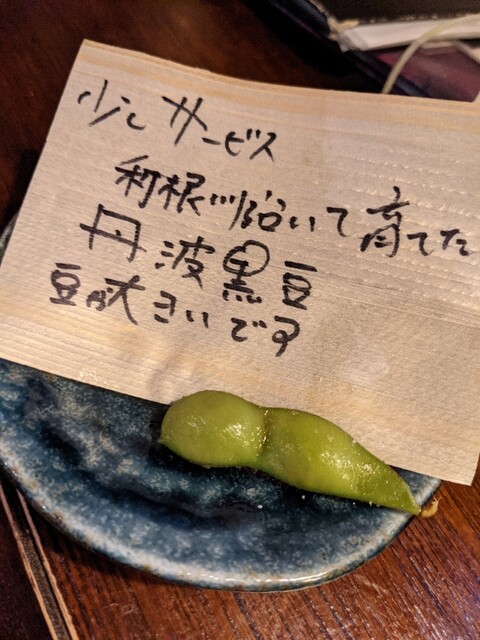 少しサービス
利根川沿いで育てた
丹波黒豆
豆が大きいです